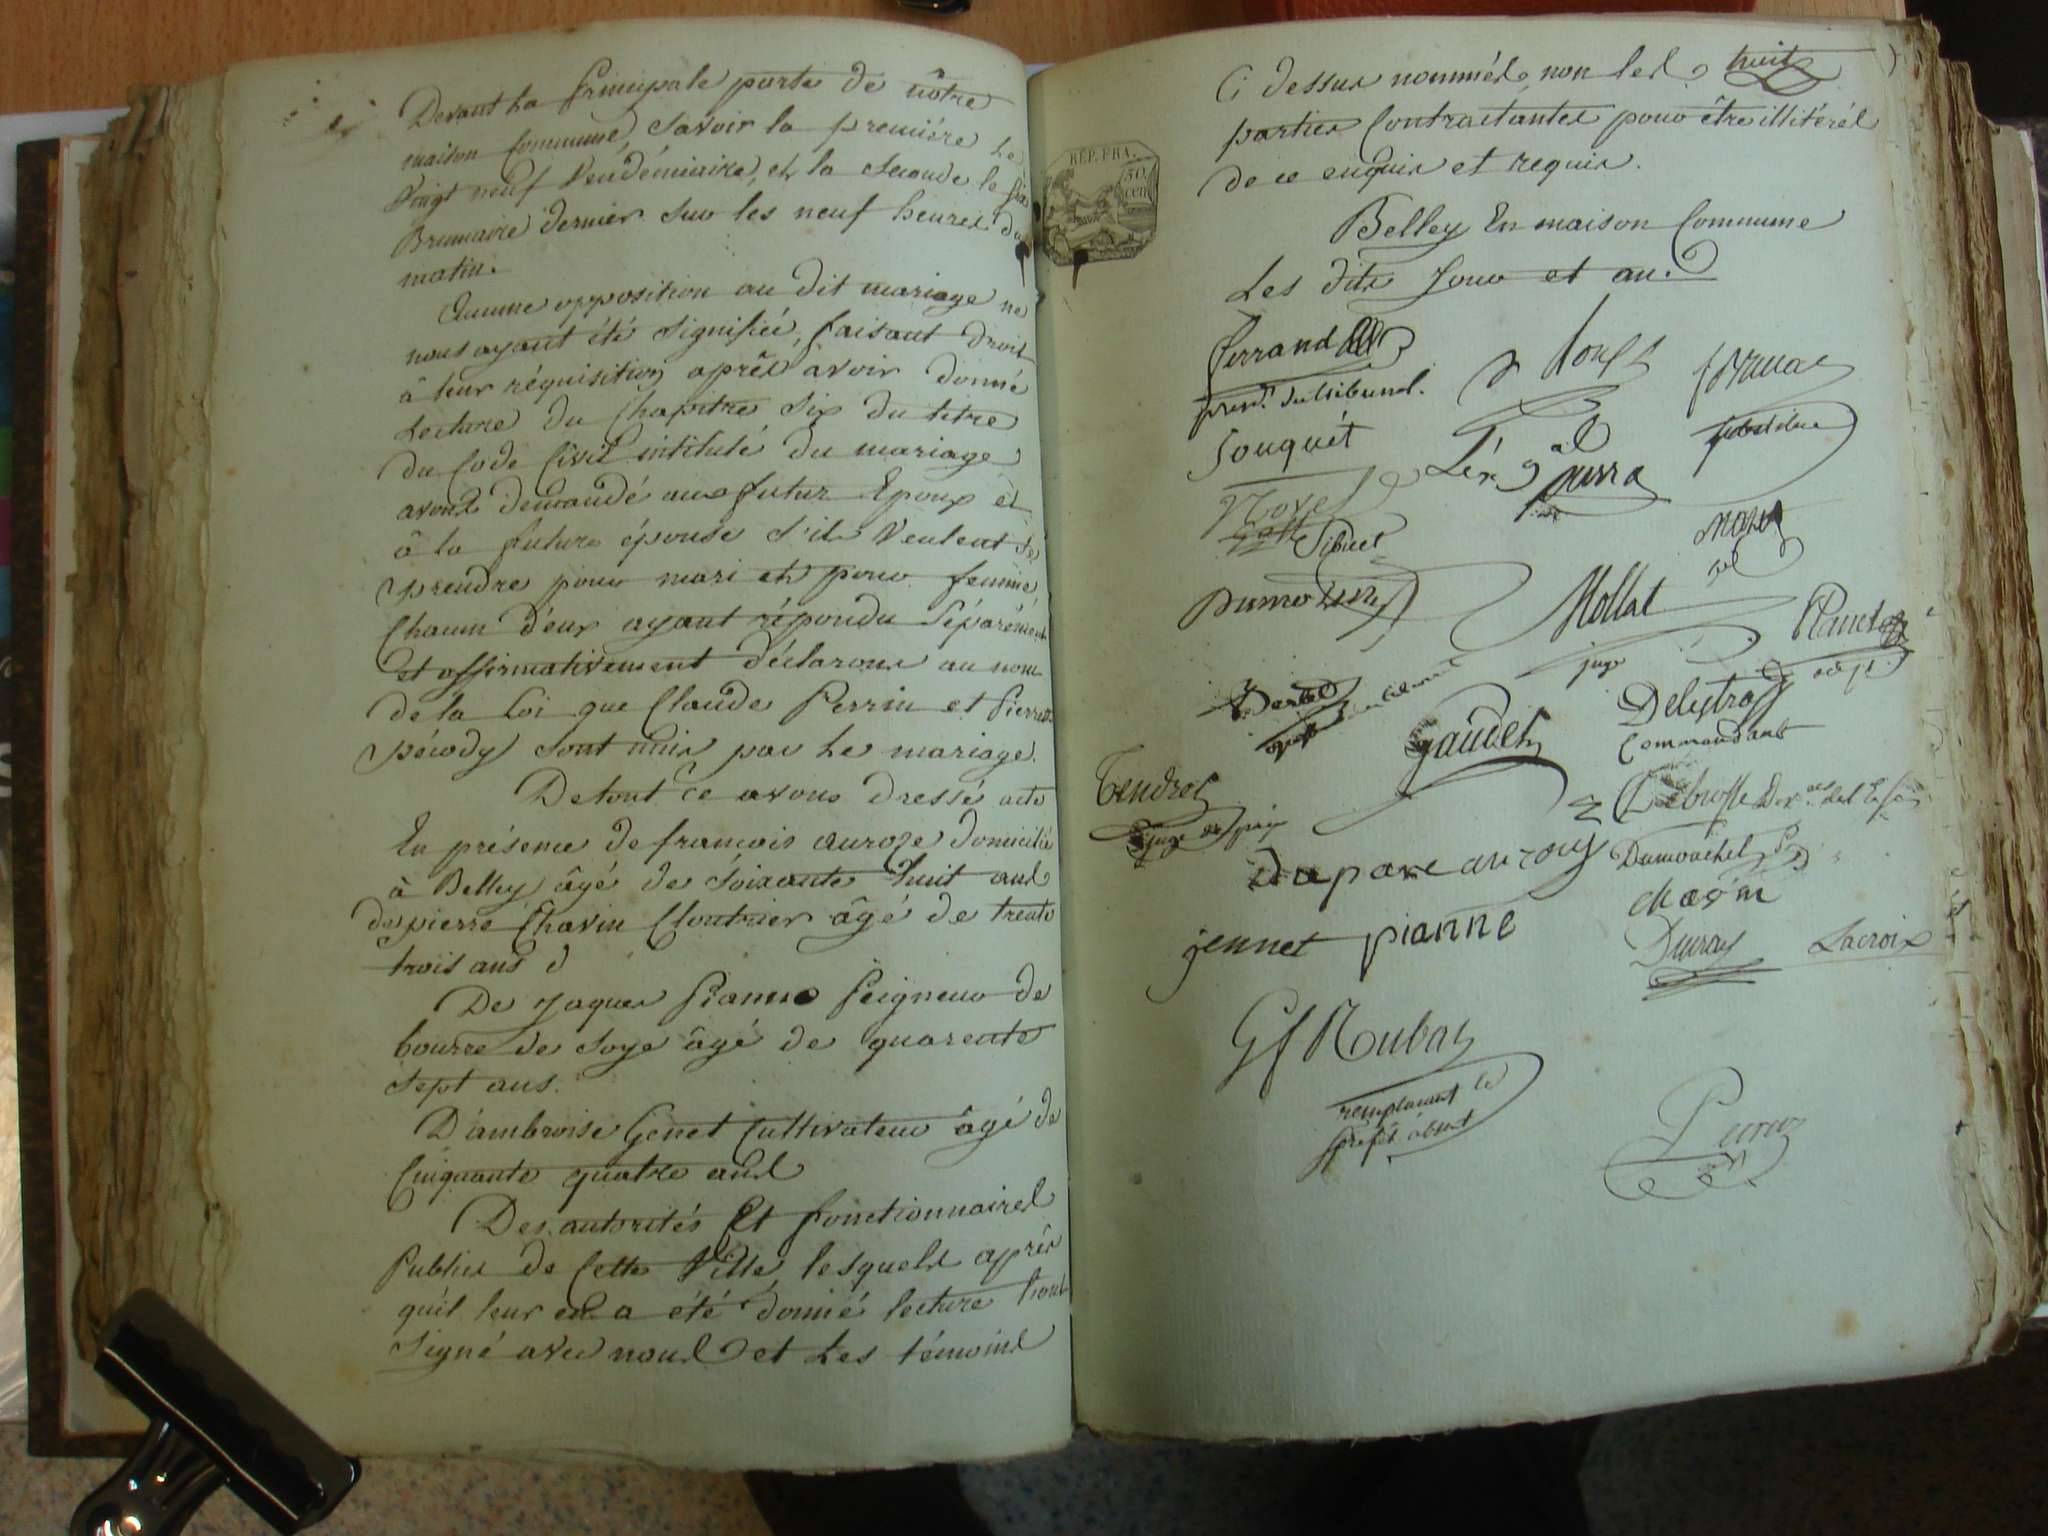 Devant La Principale porte de nôtre
maison Commune, Savoir la premiére Le
Vingt neuf Vendémiaire, et la Seconde le six
Brumaire dernier sur les neuf heures du
matin.
Aucune opposition au dit mariage ne
nous ayant été signifiée, faisant droit
â leur réquisition aprês avoir donné
Lecture du Chapitre Six du titre
du Code Civil intitulé du mariage
avons demandé au futur Epoux et
â la future épouse s'ils Veulent se
prendre pour mari et pour femme,
Chacun d'eux ayant répondu Séparément
et affirmativement déclarons au nom
de la Loi que Claude Perrin et Pierrette
pécody sont unis par Le mariage.
De tout ce avons dressé acte
En présence de francois auroze domicilié
â Belley âgé de soixante huit ans
de pierre Chavin Cloutrier âgé de trente
trois ans d
De Jaques Pianne Peigneur de
bourre de soye âgé de quarente
sept ans.
D'ambroise Genet Cultivateur âgé de
Cinquante quatre ans
Des autorités Et fonctionnaires
Publics de Cette Ville, lesquels aprés
qu'il leur en a été donné lecture l'ont
Signé avec nous et Les témoins
Ci dessus nommés, non les huit
parties Contractantes pour être illitérés
de ce enquis et requis.
RÉP. FRA.
50 cen
Belley En maison Commune
Les dits Jour et an.
Ferrand
presid. du tribunal.
Jouquét
substitu
Sibuet
Mollat
juge
Gaudet
Commandant
Tendrot
juge de paix
Dumouchel
chavin
jennet pianne
Duray Lacroix
Gf Rubat
remplacant le
préfet absent